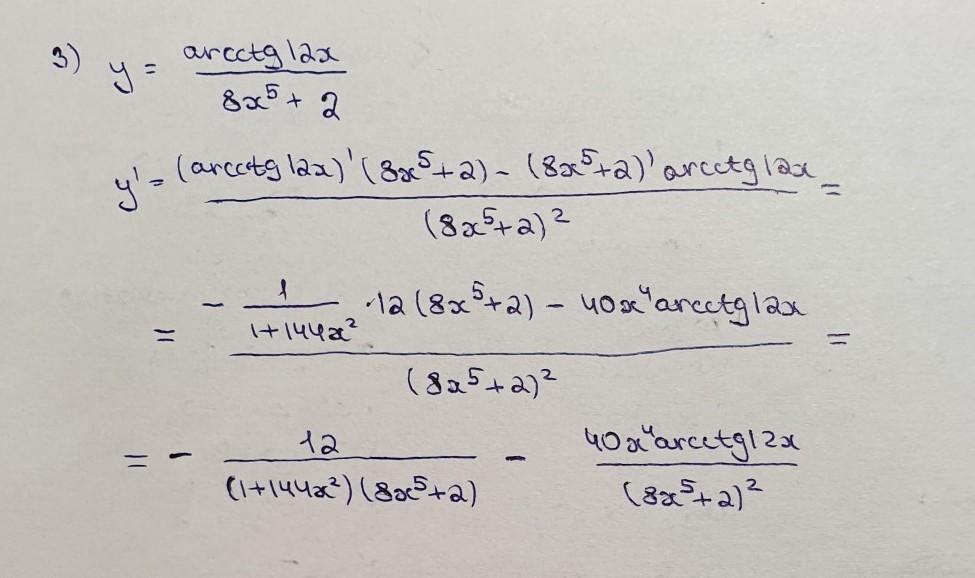 3) y = arcctg12x / 8x⁵ + 2
y' = (arcctg12x)' (8x⁵+2) - (8x⁵+2)' arcctg12x / (8x⁵+2)² =
= - 1 / 1+144x² · 12 (8x⁵+2) - 40x⁴arcctg12x / (8x⁵+2)² =
= - 12 / (1+144x²)(8x⁵+2) - 40x⁴arcctg12x / (8x⁵+2)²